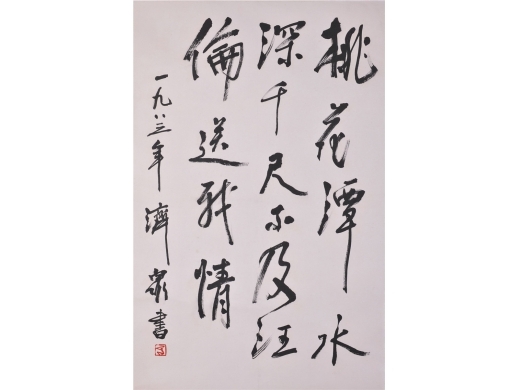 桃花潭水
深千尺不及汪
倫送我情
一九八三年 濟泉書